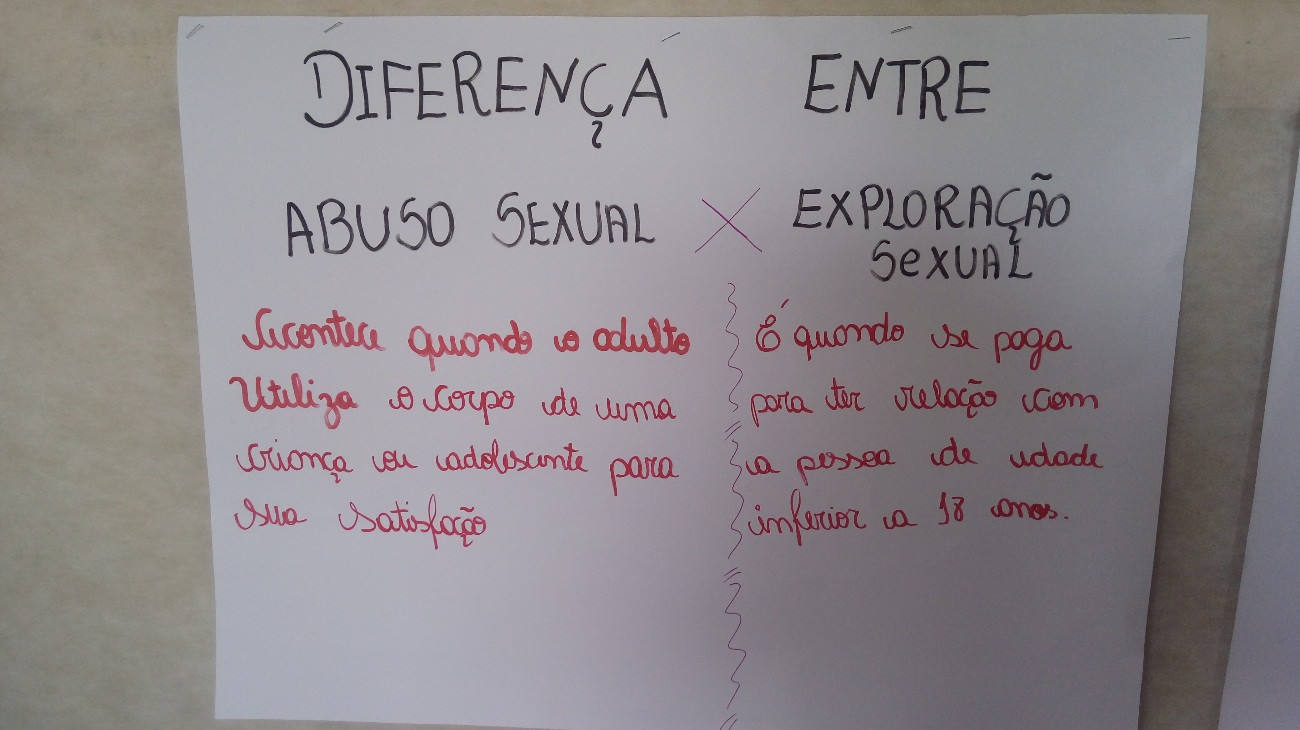 DIFERENÇA ENTRE
ABUSO SEXUAL X EXPLORAÇÃO
SeXUAL
Acontece quando o adulto
Utiliza o corpo de uma
criança ou adolescente para
sua satisfação
É quando se paga
para ter relação com
a pessoa de idade
inferior a 18 anos.